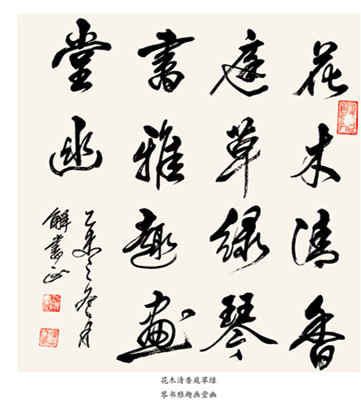 花木清香
庭草绿琴
書雅趣画
堂幽
乙未之冬月
花木清香庭草绿
琴书雅趣画堂幽